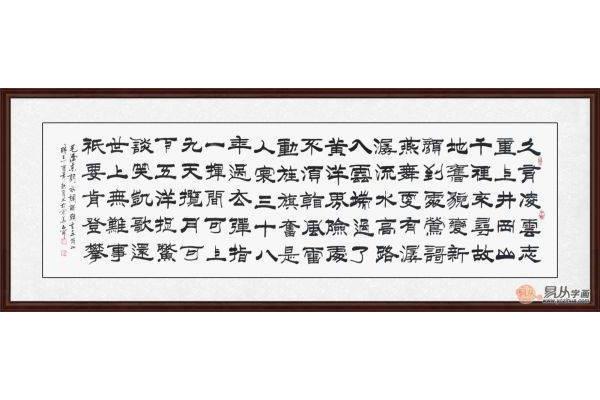 久有凌雲志
重上井岡山
千里来尋故
地舊貌變新
顔到處鶯歌
燕舞更有潺
潺流水高路
入雲端過了
黄洋界險處
不須看風雷
動旌旗奮是
人寰三十八
年過去彈指
一揮間可上
九天攬月可
下五洋捉鱉
談笑凱歌還
世上無難事
祇要肯登攀
毛澤東詞水調歌頭重上井岡山
易从字画
www.yczihua.com